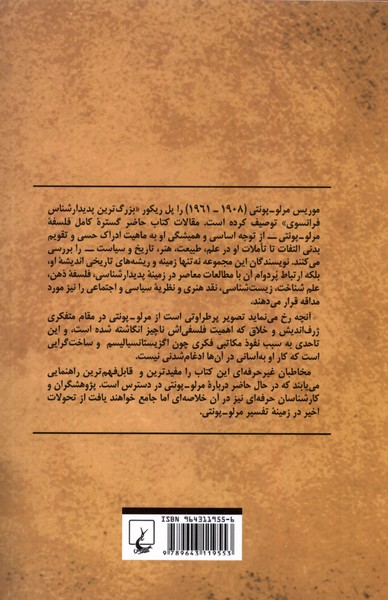 موریس مرلو-پونتی (۱۹۰۸ - ۱۹۶۱) را پل ریکور «بزرگ‌ترین پدیدارشناس
فرانسوی» توصیف کرده است. مقالات کتاب حاضر گسترهٔ کامل فلسفهٔ
مرلو-پونتی ــ از توجه اساسی و همیشگی او به ماهیت ادراک حسی و تقویم
بدنی التفات تا تأملات او در علم، طبیعت، هنر، تاریخ و سیاست ــ را بررسی
می‌کنند. نویسندگان این مجموعه نه‌تنها زمینه و ریشه‌های تاریخی اندیشهٔ او،
بلکه ارتباط پُردوام آن با مطالعات معاصر در زمینهٔ پدیدارشناسی، فلسفهٔ ذهن،
علم شناخت، زیست‌شناسی، نقد هنری و نظریهٔ سیاسی و اجتماعی را نیز مورد
مداقه قرار می‌دهند.
آنچه رخ می‌نماید تصویر پرطراوتی است از مرلو-پونتی در مقام متفکری
ژرف‌اندیش و خلاق که اهمیت فلسفی‌اش ناچیز انگاشته شده است، و این
تاحدی به سبب نفوذ مکاتبی فکری چون اگزیستانسیالیسم و ساخت‌گرایی
است که کار او به‌آسانی در آن‌ها ادغام‌شدنی نیست.
مخاطبان غیرحرفه‌ای این کتاب را مفیدترین و قابل‌فهم‌ترین راهنمایی
می‌یابند که در حال حاضر دربارهٔ مرلو-پونتی در دسترس است. پژوهشگران و
کارشناسان حرفه‌ای نیز در آن خلاصه‌ای اما جامع خواهند یافت از تحولات
اخیر در زمینهٔ تفسیر مرلو-پونتی.
ISBN 964311955-6
9 789643 119553